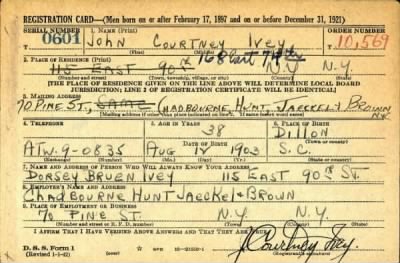 REGISTRATION CARD—(Men born on or after February 17, 1897 and on or before December 31, 1921)
SERIAL NUMBER 1. NAME (Print) ORDER NUMBER
0601 John Courtney Ivey 10,569
(First) (Middle) (Last)
2. PLACE OF RESIDENCE (Print)
115 EAST 90th 168 East 74th N.Y. N.Y.
(Number and street) (Town, township, village, or city) (County) (State)
[THE PLACE OF RESIDENCE GIVEN ON THE LINE ABOVE WILL DETERMINE LOCAL BOARD
JURISDICTION; LINE 2 OF REGISTRATION CERTIFICATE WILL BE IDENTICAL]
3. MAILING ADDRESS
70 PINE ST., SAME CHADBOURNE HUNT, JAECKEL & BROWN N.Y.
[Mailing address if other than place indicated on line 2. If same insert word same]
4. TELEPHONE 5. AGE IN YEARS 6. PLACE OF BIRTH
38 DILLON
DATE OF BIRTH
ATW. 9-0835 Aug 18 1903 S.C.
(Exchange) (Number) (Mo.) (Day) (Yr.) (State or country)
7. NAME AND ADDRESS OF PERSON WHO WILL ALWAYS KNOW YOUR ADDRESS
DORSEY BRUEN IVEY 115 EAST 90th ST.
8. EMPLOYER'S NAME AND ADDRESS
CHADBOURNE HUNT JAECKEL & BROWN
9. PLACE OF EMPLOYMENT OR BUSINESS
70 PINE ST. N.Y. N.Y.
(Number and street or R. F. D. number) (Town) (County) (State)
I AFFIRM THAT I HAVE VERIFIED ABOVE ANSWERS AND THAT THEY ARE TRUE.
D. S. S. Form 1
(Revised 1-1-42) (over)
J. Courtney Ivey
(Registrant's signature)